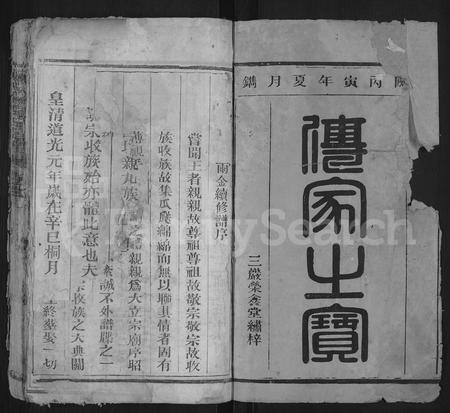 丙寅年夏月鐫
傳家之寶
三嚴榮金堂繡梓
雨金續修譜序
嘗聞王者親親故尊祖尊祖故敬宗敬宗故收
族收族故集瓜瓞綿綿而無以聯其情者固有
親九族親親為大立宗廟序昭
誠不外譜牒之一
宗收族殆亦體此意也夫
收族之大典關
皇清道光元年歲在辛巳桐月
FamilySearch